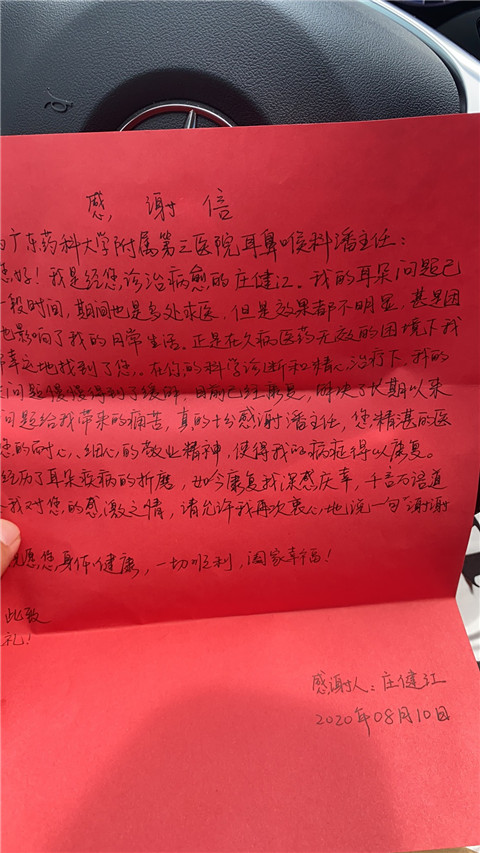 感谢信
广东药科大学附属第三医院耳鼻喉科潘主任：
您好！我是经您诊治病愈的庄健江。我的耳朵问题已
一段时间，期间也是多处求医，但是效果都不明显，甚是困
也影响了我的日常生活。正是在久病医药无效的困境下我
幸运地找到了您。在你的科学诊断和精心治疗下，我的
问题慢慢得到了缓解，目前已经康复，解决了长期以来
问题给我带来的痛苦，真的十分感谢潘主任，您精湛的医
您的耐心、细心的敬业精神，使得我的病症得以康复。
经历了耳朵疾病的折磨，如今康复我深感庆幸，千言万语道
我对您的感激之情，请允许我再次衷心地说一句"谢谢
祝愿您身体健康，一切顺利，阖家幸福！
此致
礼！
感谢人：庄健江
2020年08月10日